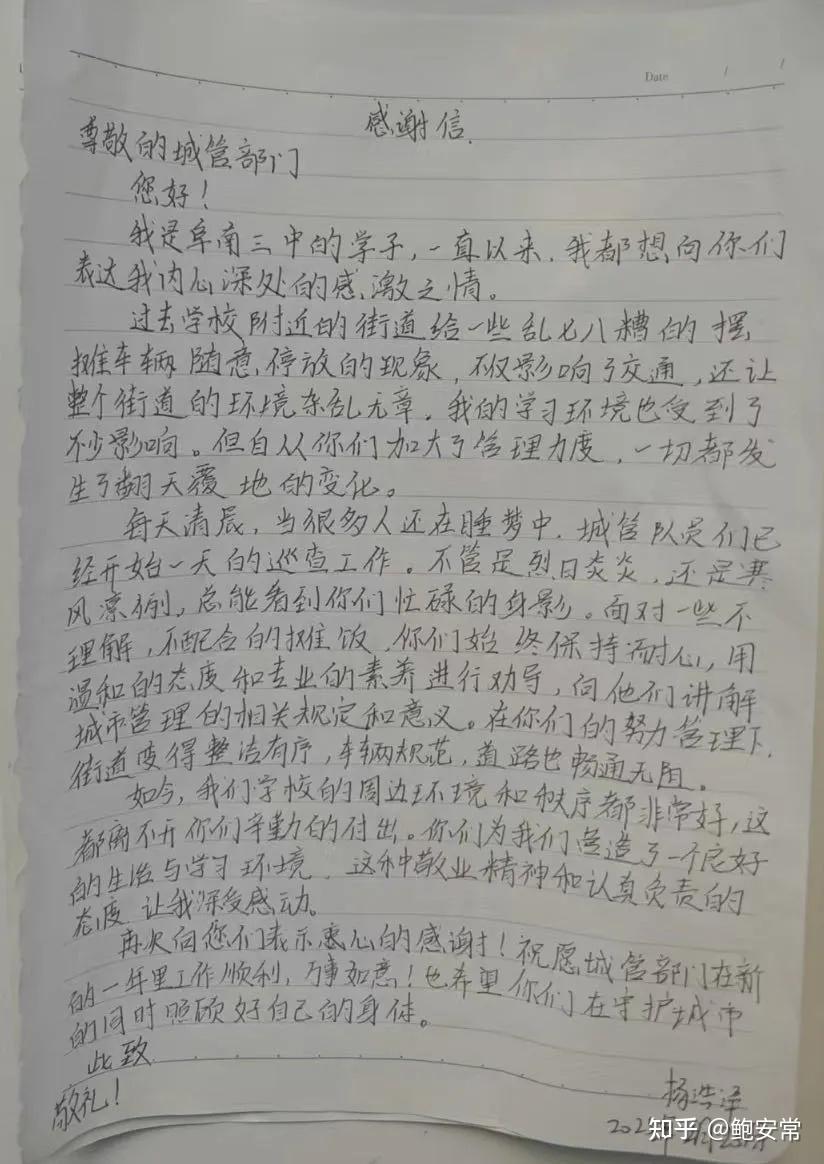 Date / /
感谢信.
尊敬的城管部门
您好！
我是阜南三中的学子，一直以来，我都想向你们
表达我内心深处的感激之情。
过去学校附近的街道给一些乱七八糟的摆
摊车辆随意停放的现象，不仅影响了交通，还让
整个街道的环境杂乱无章，我的学习环境也受到了
不少影响。但自从你们加大了管理力度，一切都发
生了翻天覆地的变化。
每天清晨，当很多人还在睡梦中，城管队员们已
经开始一天的巡查工作。不管是烈日炎炎，还是寒
风凛冽，总能看到你们忙碌的身影。面对一些不
理解，不配合的摊饭，你们始终保持耐心，用
温和的态度和专业的素养进行劝导，向他们讲解
城市管理的相关规定和意义。在你们的努力管理下，
街道变得整洁有序，车辆规范，道路也畅通无阻。
如今，我们学校的周边环境和秩序都非常好，这
都离不开你们辛勤的付出。你们为我们营造了一个良好
的生活与学习环境，这种敬业精神和认真负责的
态度，让我深受感动。
再次向您们表示衷心的感谢！祝愿城管部门在新
的一年里工作顺利，万事如意！也希望你们在守护城市
的同时照顾好自己的身体。
此致
敬礼！
杨浩泽
202
知乎 @鲍安常